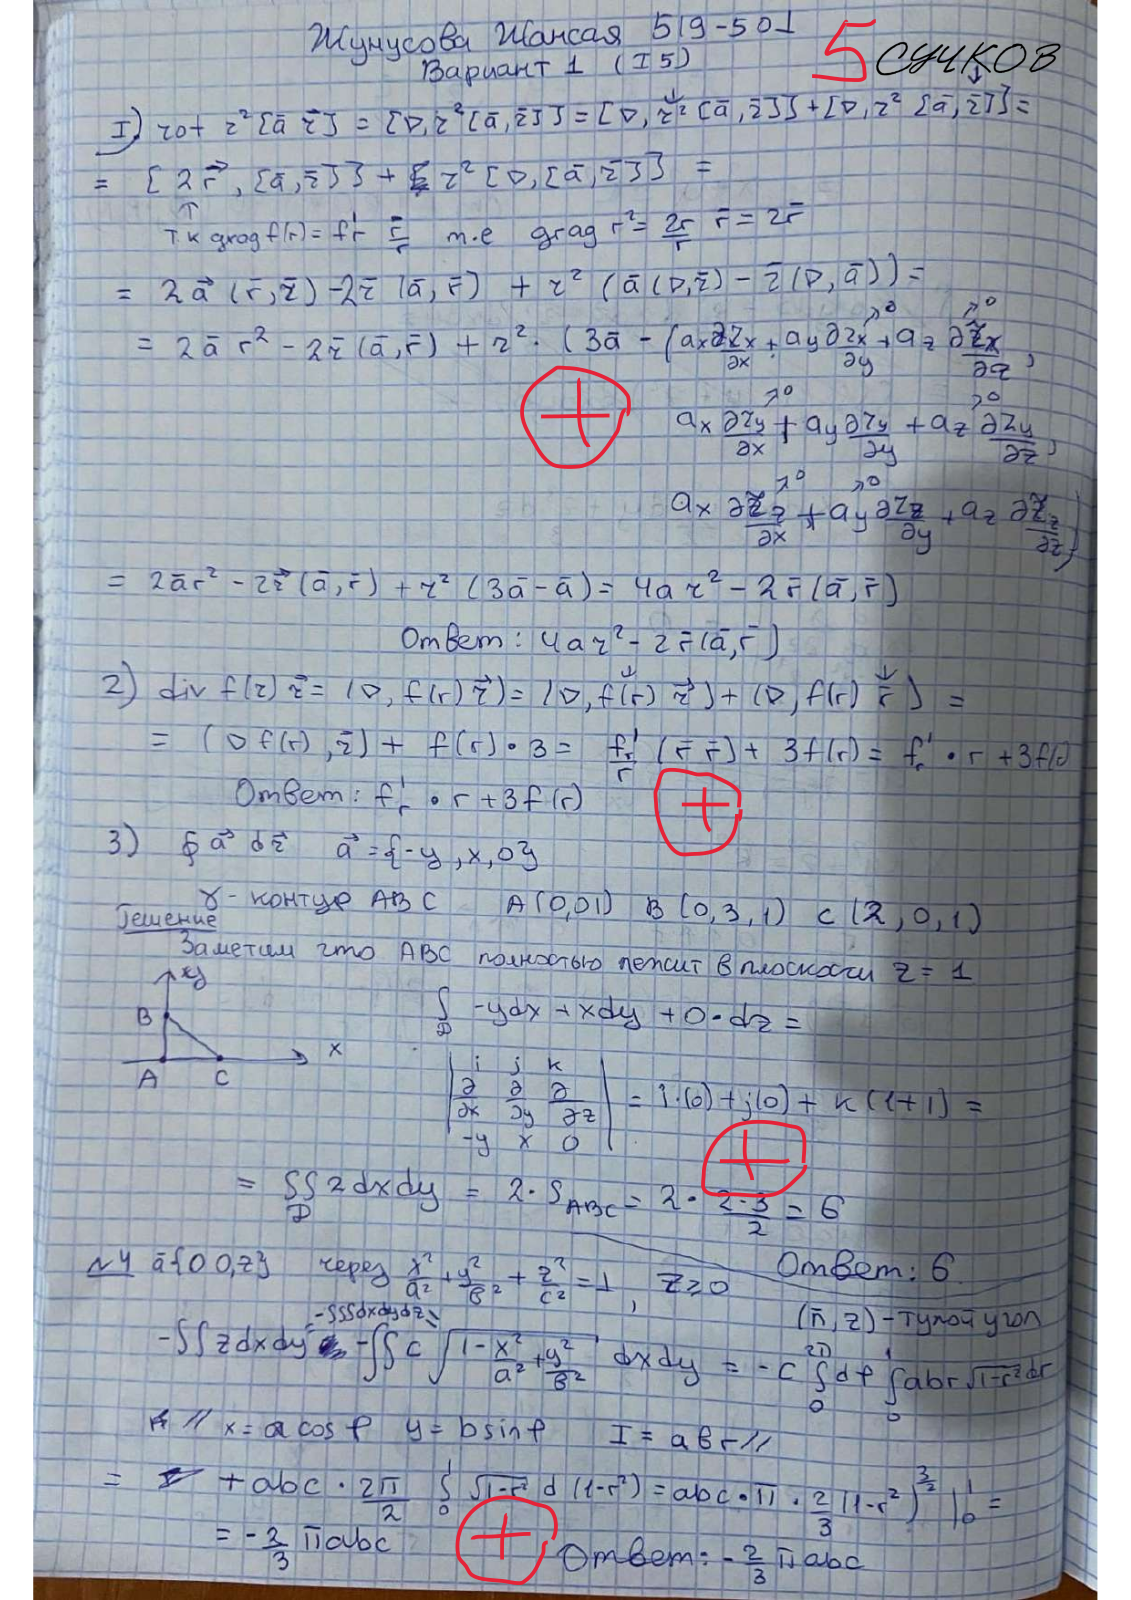 Жунусова Жансая 519-501
5 сучков
Вариант 1 (I 5)
I) rot r²[ā r̄] = [∇, r²[ā, r̄]] = [∇, r² [ā, r̄]] + [∇, r² [ā, r̄]] =
= [2r⃗, [ā, r̄]] + r² [∇, [ā, r̄]] =
↑
т к grad f(r) = f'r r̄/r т.е grad r² = 2r/r r̄ = 2r̄
= 2a⃗ (r̄, r̄) - 2r̄ (ā, r̄) + r² (ā (∇, r̄) - r̄ (∇, ā)) =
= 2ā r² - 2r̄ (ā, r̄) + r² · (3ā - (ax ∂rx/∂x + ay ∂rx/∂y + az ∂rx/∂z,
ax ∂ry/∂x + ay ∂ry/∂y + az ∂ry/∂z,
ax ∂rz/∂x + ay ∂rz/∂y + az ∂rz/∂z)
= 2ār² - 2r⃗ (ā, r̄) + r² (3ā - ā) = 4a r² - 2r̄ (ā, r̄)
Ответ: 4a r² - 2r̄ (ā, r̄)
2) div f(r) r⃗ = (∇, f(r) r⃗) = (∇, f(r) r⃗) + (∇, f(r) r̄) =
= (∇ f(r), r̄) + f(r) · 3 = f'r/r (r̄ r̄) + 3f(r) = f'r · r + 3f(r)
Ответ: f'r · r + 3f(r)
3) ∮ a⃗ dr⃗ a⃗ = {-y, x, 0}
γ - контур ABC A(0,01) B(0,3,1) C(2,0,1)
Решение
Заметим что ABC полностью лежит в плоскости z = 1
y
B
A C x
∫ -ydx + xdy + 0·dz =
D
| i j k |
| ∂/∂x ∂/∂y ∂/∂z | = i·(0) + j(0) + k(1+1) =
| -y x 0 |
= ∬ 2dxdy = 2·S ABC = 2 · 2·3/2 = 6
D
Ответ: 6
№4 ā{0 0,z} через x²/a² + y²/b² + z²/c² = 1, z≥0
(n̄, z) - тупой угол
-∭dxdydz =
-∬zdxdy = -∬ c √(1 - x²/a² + y²/b²) dxdy = -c ∫₀^2π dφ ∫₀^1 abr √(1-r²) dr
// x = a cos φ y = b sin φ I = abr //
= + abc · 2π/2 ∫₀^1 √(1-r²) d(1-r²) = abc·π · 2/3 (1-r²)^3/2 |₀^1 =
= -2/3 πabc
Ответ: -2/3 πabc